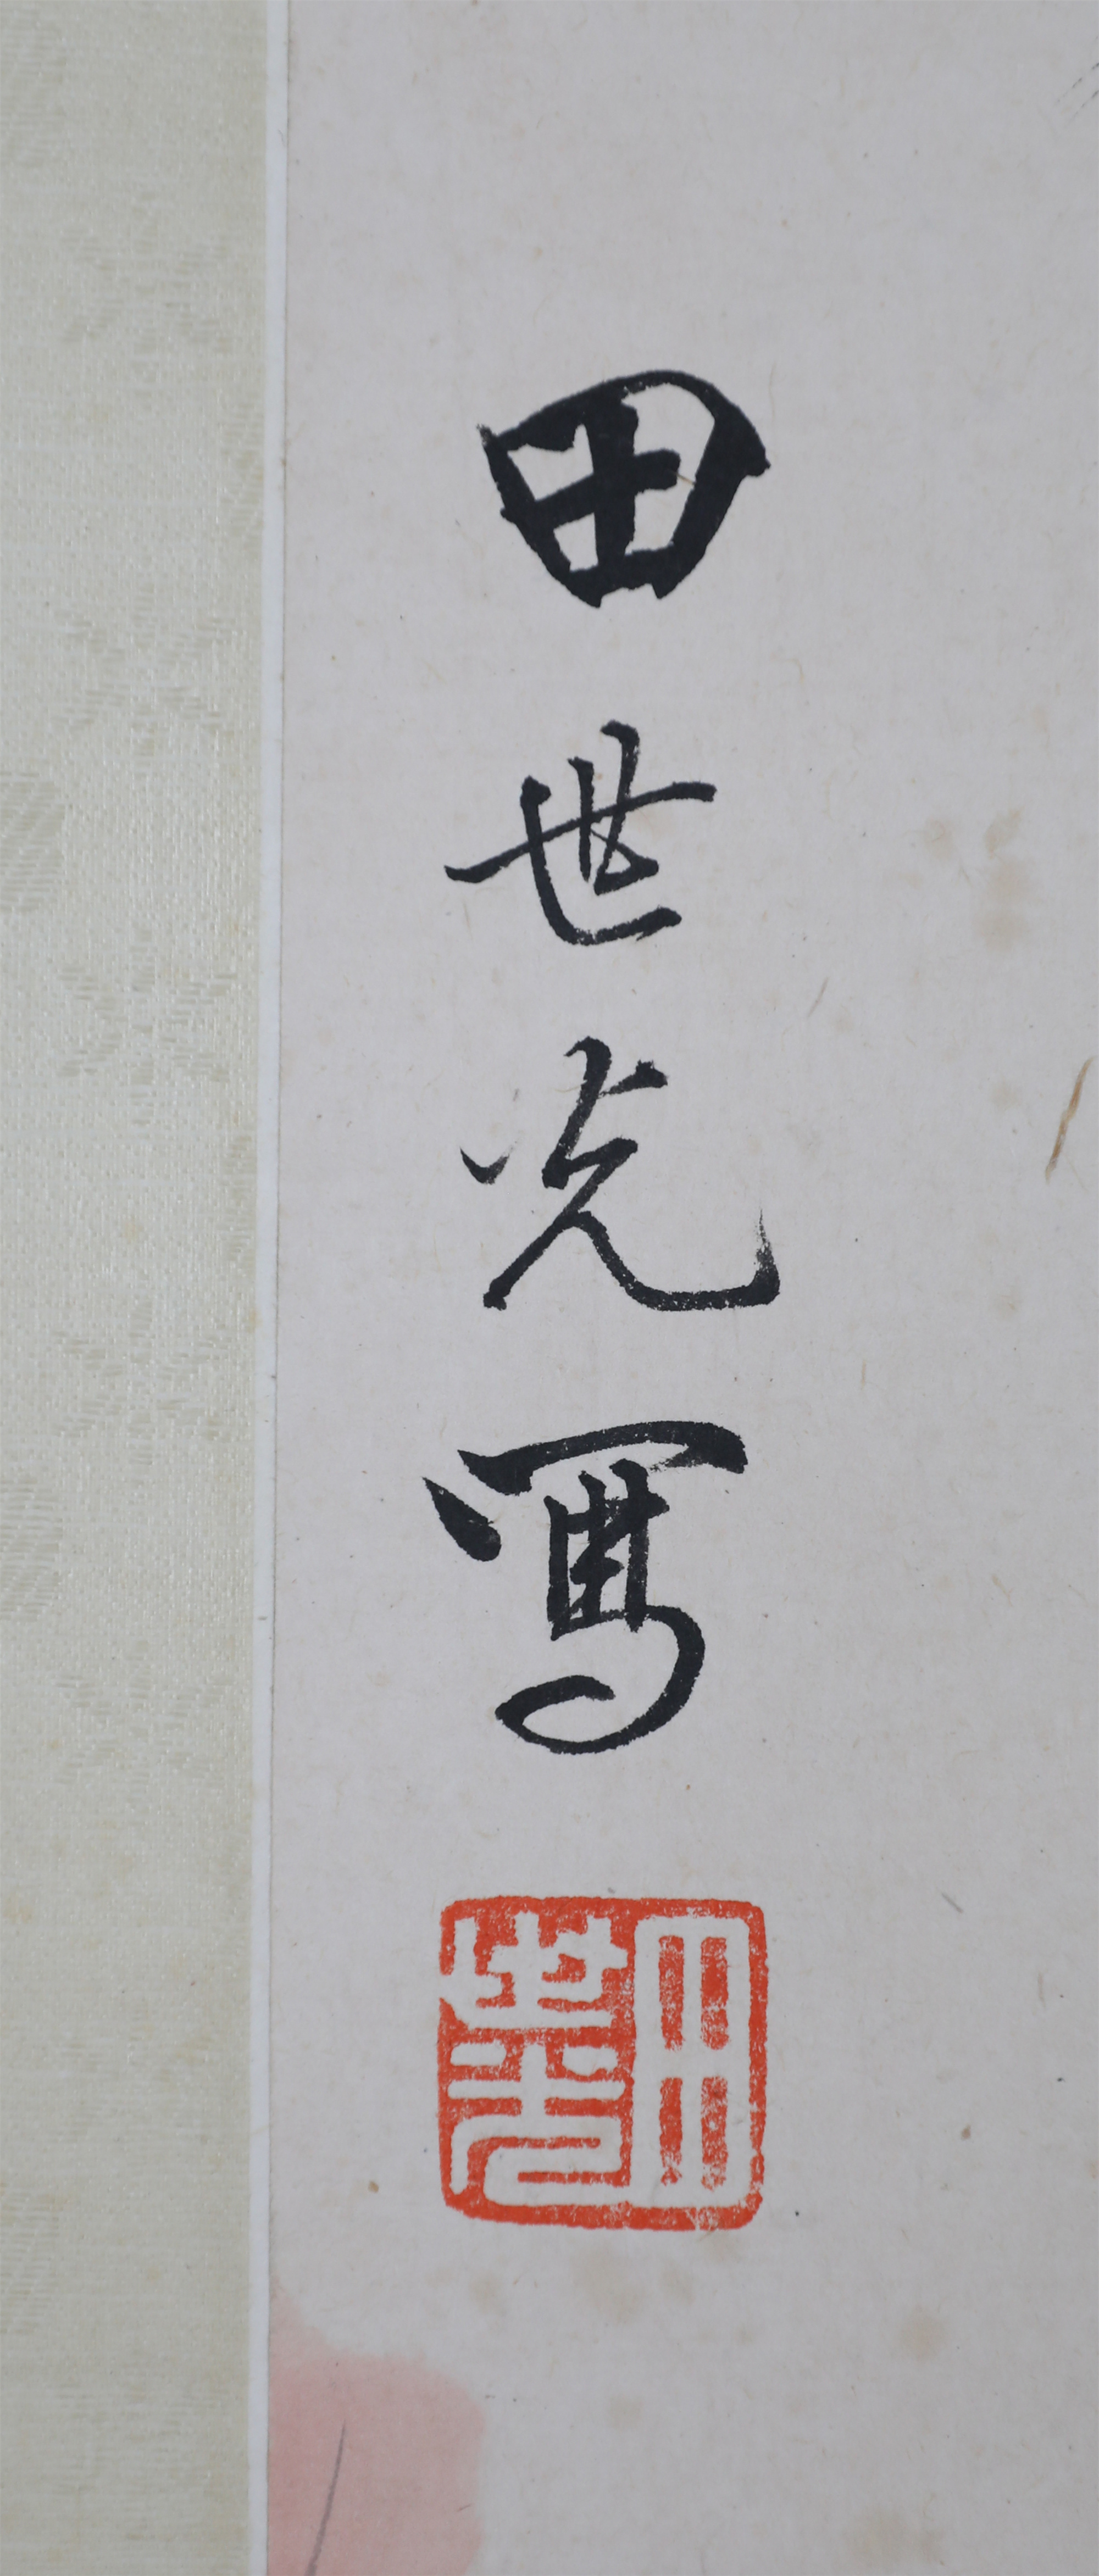 田世光寫
田世光